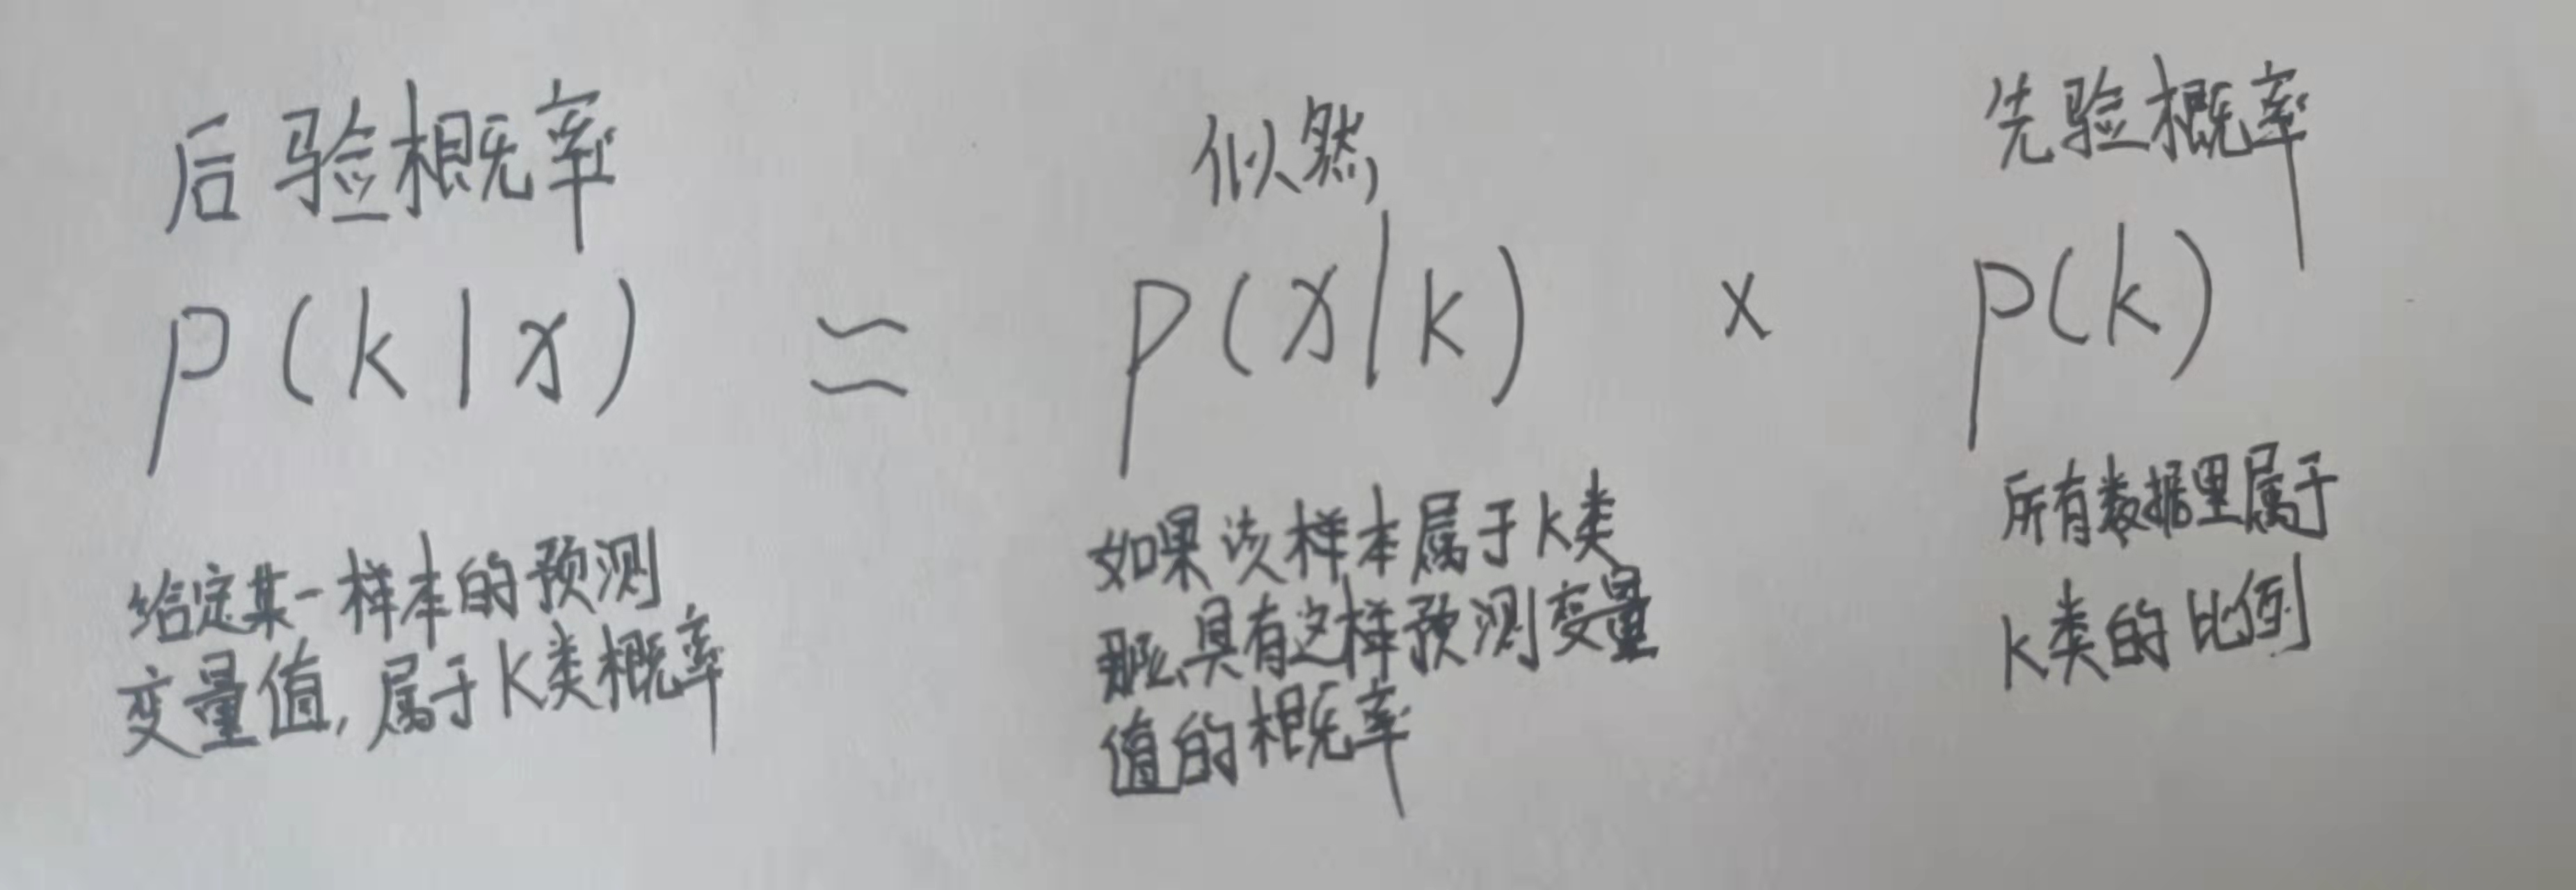 后验概率
似然
先验概率
p(k|x) ≈ p(x|k) × p(k)
给定某一样本的预测
变量值，属于K类概率
如果该样本属于k类
那么具有这样预测变量
值的概率
所有数据里属于
k类的比例